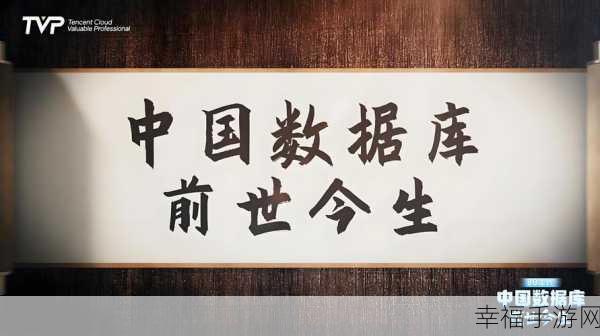 TVP Tencent Cloud
Valuable Professional
中国数据库
前世今生
中国数据库
幸福手游网